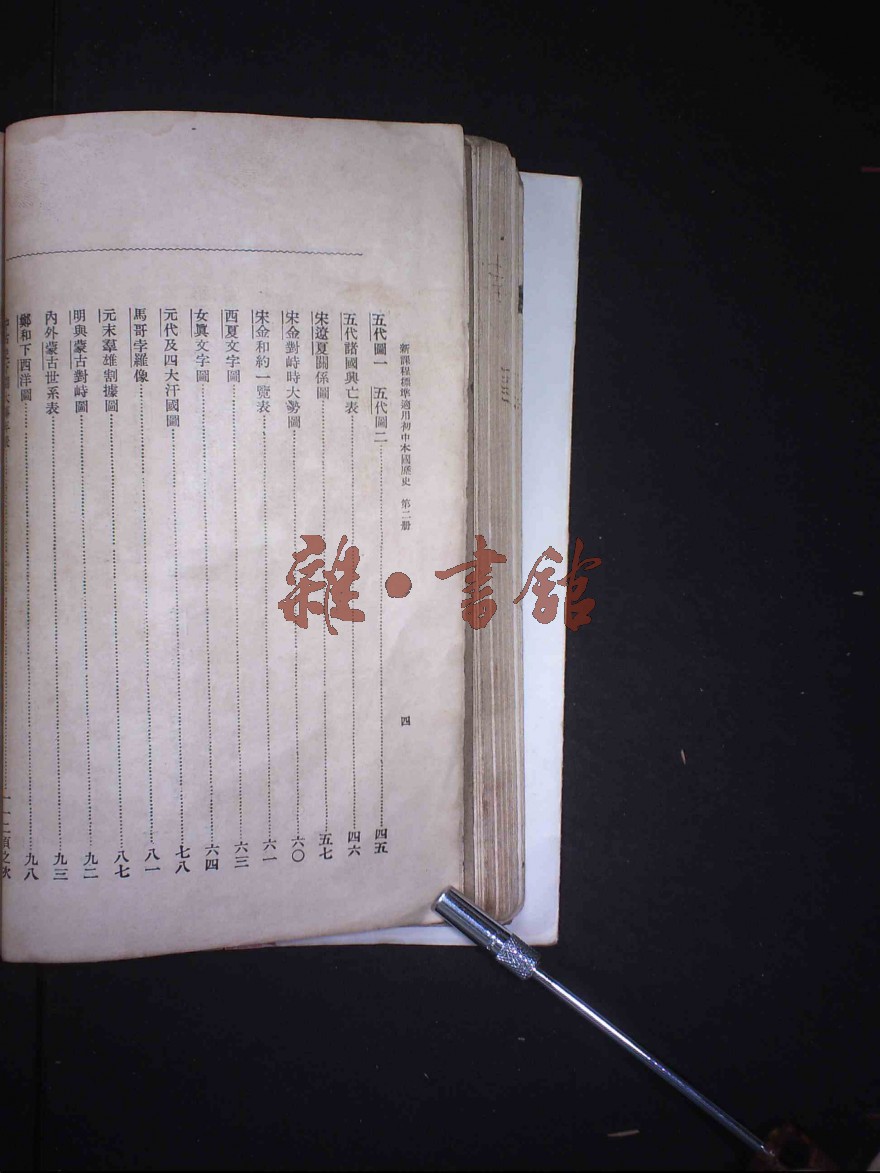 新課程標準適用初中本國歷史 第二册
四
五代圖一 五代圖二……四五
五代諸國興亡表……四六
宋遼夏關係圖……五七
宋金對峙時大勢圖……六〇
宋金和約一覽表……六一
西夏文字圖……六三
女眞文字圖……六四
元代及四大汗國圖……七八
馬哥孛羅像……八一
元末羣雄割據圖……八七
明與蒙古對峙圖……九二
內外蒙古世系表……九三
鄭和下西洋圖……九八
一一二頁之次
雜·書館